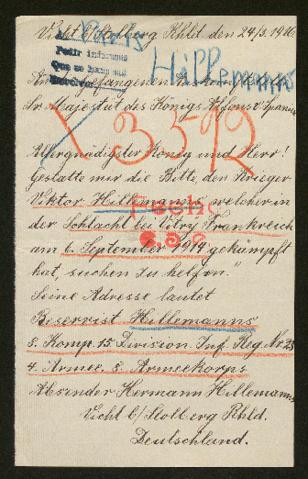 Vicht b/Stolberg Rhld. den 24/3. 1916
Paris
Pedir informes
Hillemanns
Sr. Majestät des Königs Alfons v. Spanien
3592
Allergnädigster König und Herr!
Gestatte mir die Bitte, den Krieger
Viktor Hillemanns, welcher in
der Schlacht bei Vitry Frankreich
am 6. September 1914 gekämpft
hat, suchen zu helfen.
Seine Adresse lautet
Reservist Hillemanns
5. Komp. 15 Division Inf. Reg. Nr. 25
4. Armee. 8. Armeekorps
Absender Hermann Hillemanns
Vicht b/Stolberg Rhld.
Deutschland.